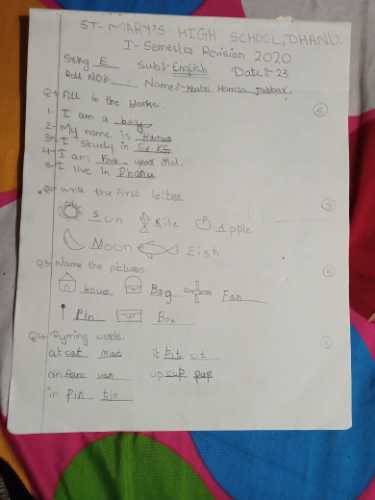 ST. MARY'S HIGH SCHOOL, DHANU.
I-Semester Revision 2020
Sub:- English Date:- 23
Roll NO:- Name:- Hamza
Q1 Fill in the blanks. 5
1- I am a boy
2- My name is Hamza
3- I study in Sr KG
4- I am year old.
5- I live in Dhanu
Q2 write the First letter 5
Sun Kite Apple
Moon Fish
Q3 Name the pictures. 5
house Bag Fan
Pin Box
Q4 Ryming words. 5
at cat mat it bit sit
an fan van up cup pup
in pin tin